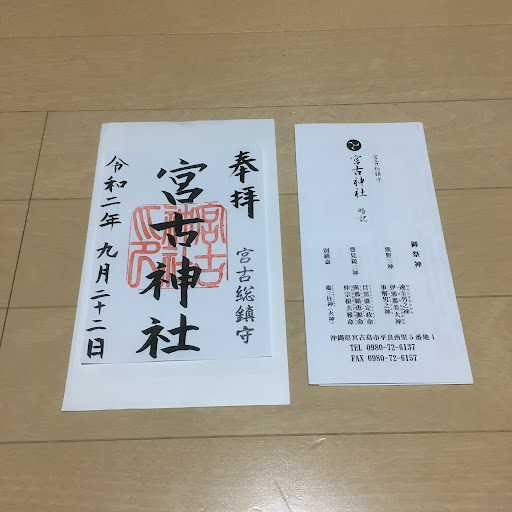 奉拝
宮古総鎮守
宮古神社
令和二年 九月二十二日
宮古総鎮守
宮古神社 略記
御祭神
熊野三神
速玉男之神
事解男之神
豊見親三神
仲宗根玄雅命
別鎮斎
沖縄県宮古島市平良西里5番地1
TEL 0980-72-6137
FAX 0980-72-6157